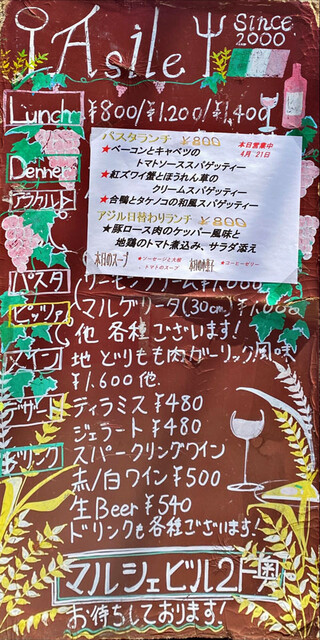 Asile
Since
2000
Lunch ¥800/¥1.200/¥1,400
パスタランチ ¥800
本日営業中
4月 21日
★ベーコンとキャベツの
トマトソーススパゲッティー
★紅ズワイ蟹とほうれん草の
クリームスパゲッティー
★合鴨とタケノコの和風スパゲッティー
アジル日替わりランチ ¥800
★豚ロース肉のケッパー風味と
地鶏のトマト煮込み、サラダ添え
本日のスープ
★ソーセージと大根
・トマトのスープ
★コーヒーゼリー
Denner
アラカルト
パスタ
ピッツァ マルゲリータ(30cm)
他 各種ございます!
メイン 地どりもも肉ガーリック風味
¥1.600 他.
デザート ティラミス ¥480
ジェラート ¥480
ドリンク スパークリングワイン
赤/白ワイン ¥500
生Beer ¥540
ドリンクも各種ございます!
マルシェビル2F奥
お待ちしております!